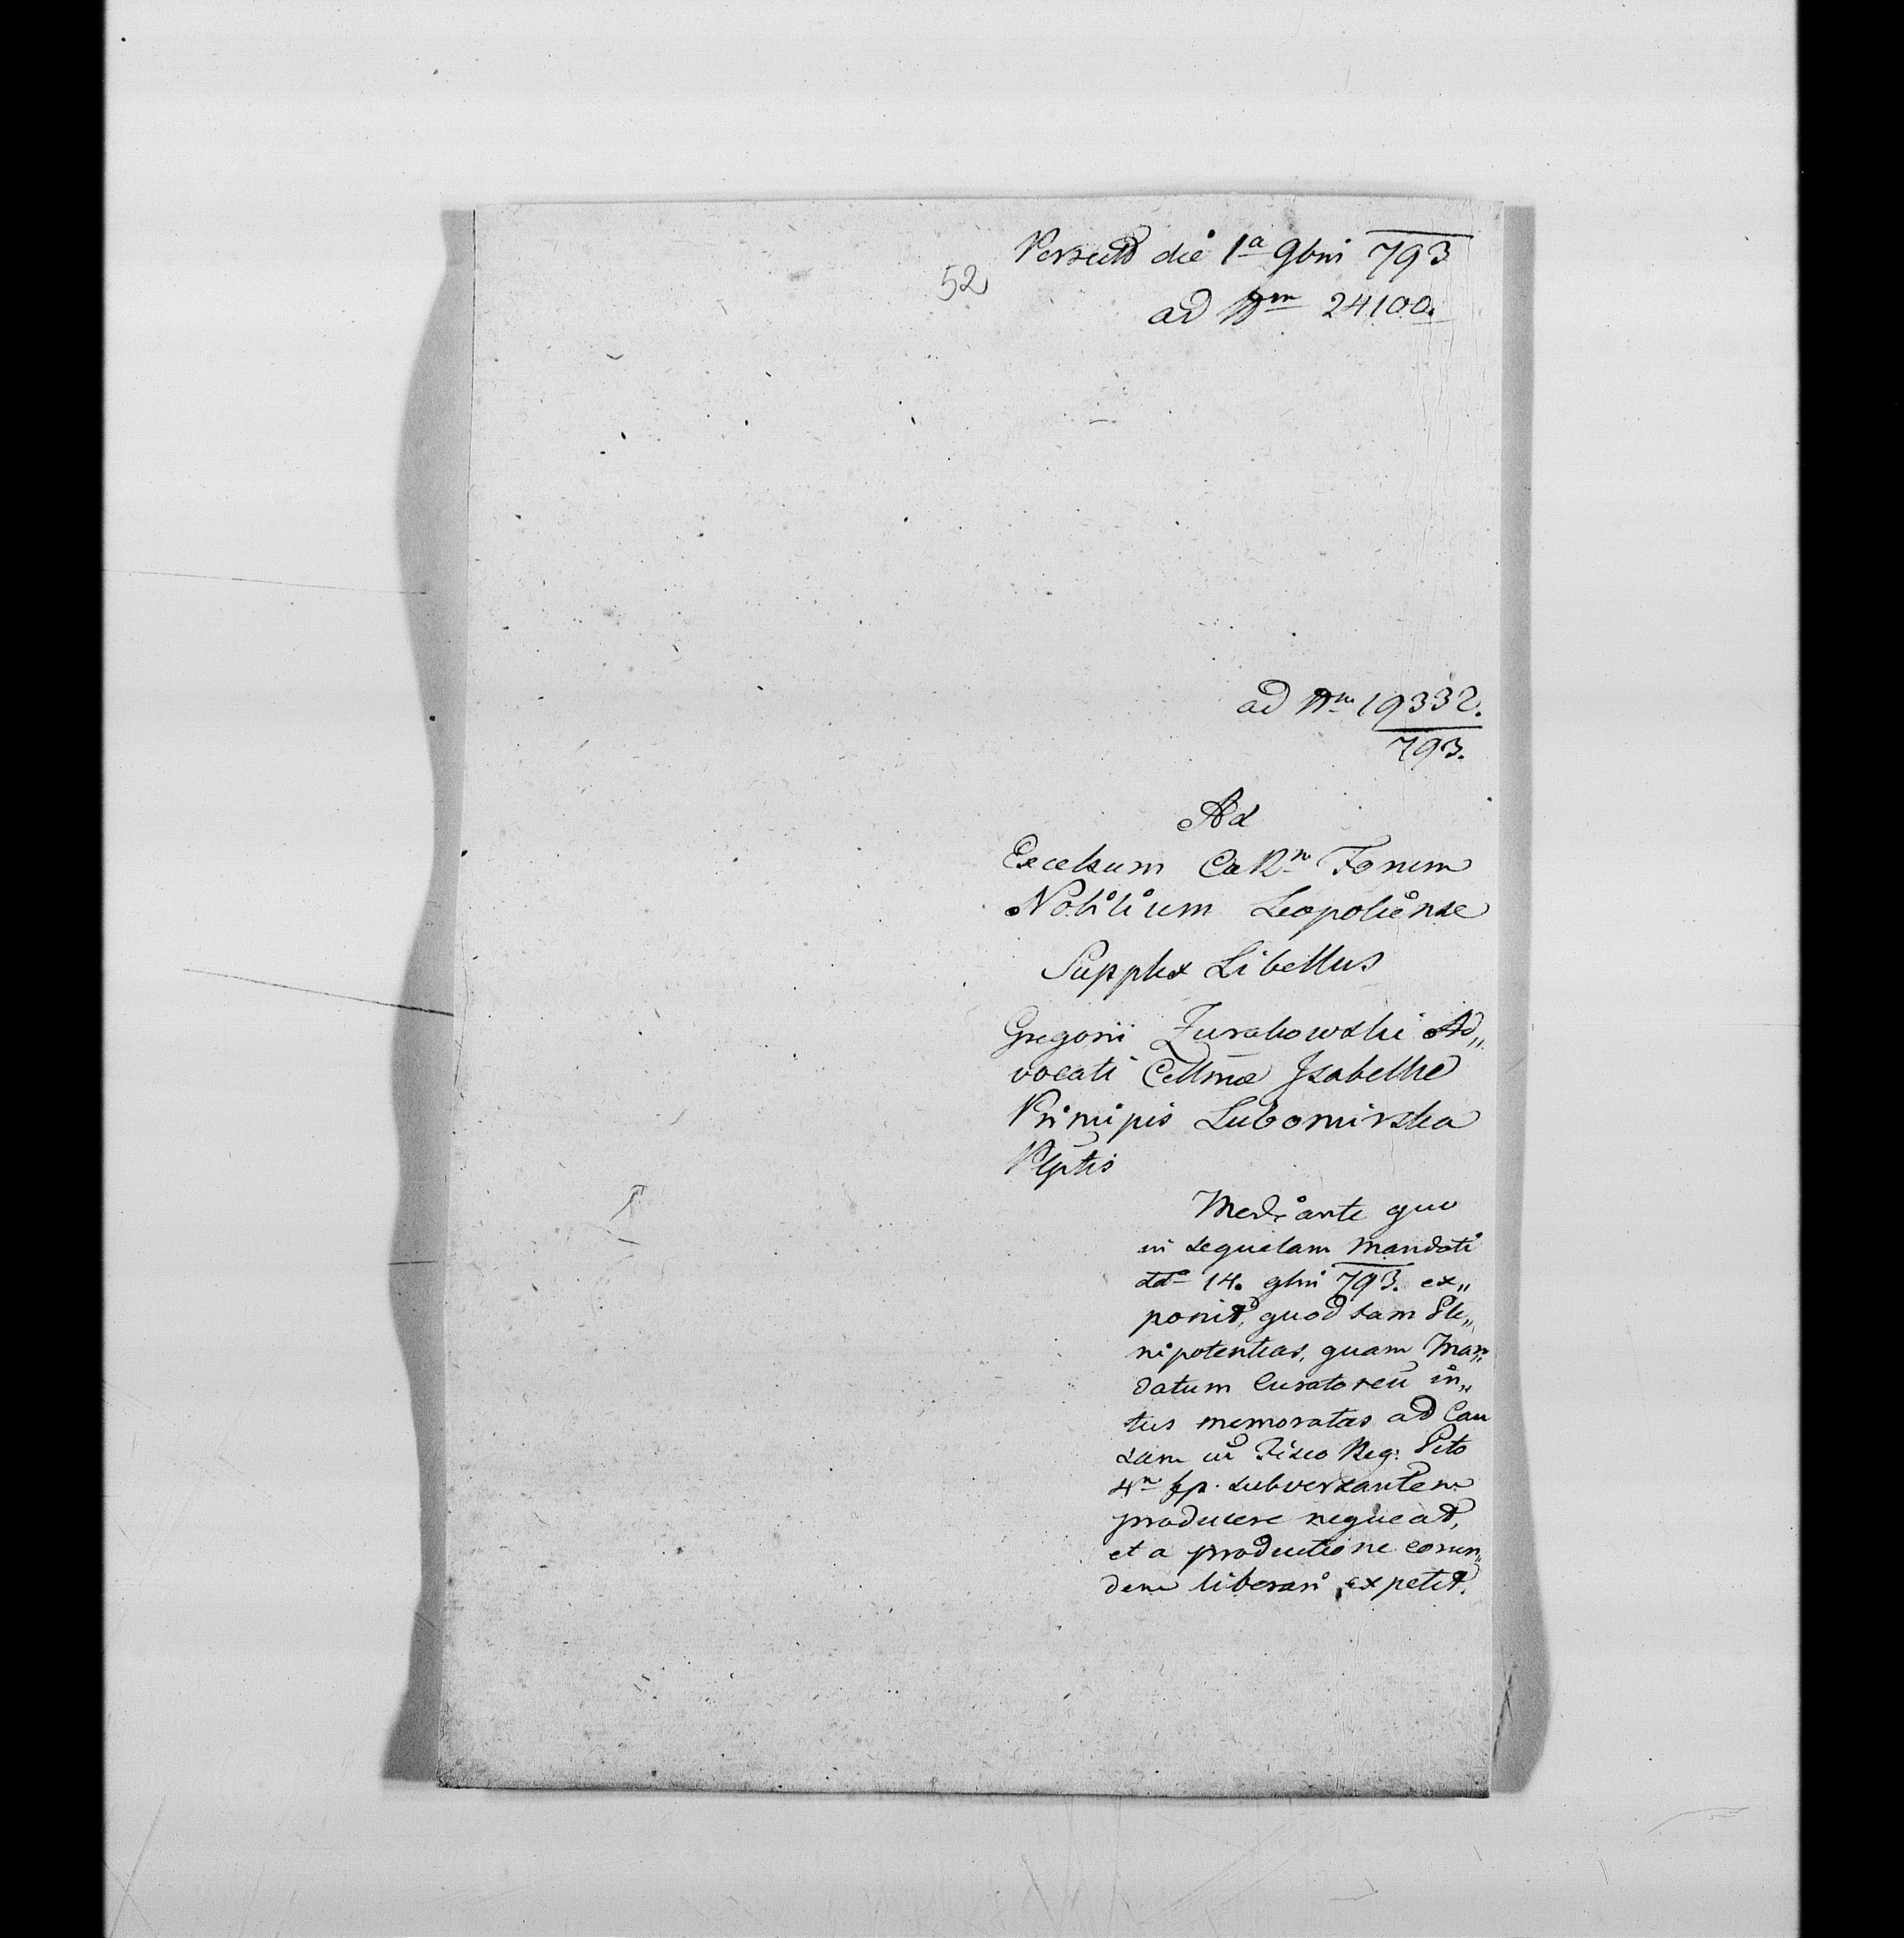 die 1a 9bris 793
52
ad Nrm 24100.
ad Nrm 19332.
793.
Ad
Excelsum CaeRm Forum
Nobilium Leopoliense
Supplex Libellus
Gregorii Zurakowski Ad„
vocati Cellmae Isabellae
Principis Lubomirska
Plgtis
Mediante quo
in sequelam Mandati
ddo 14. 9bris 793. ex„
ponit, quod tam Ple„
nipotentias, quam Man„
datum Curatoreu in„
tus memoratas ad Cau
sam cū Fisco Reg: Pcto
4m fp. subversantem
producere nequeat,
et a productione eorun„
dem liberari expetit.